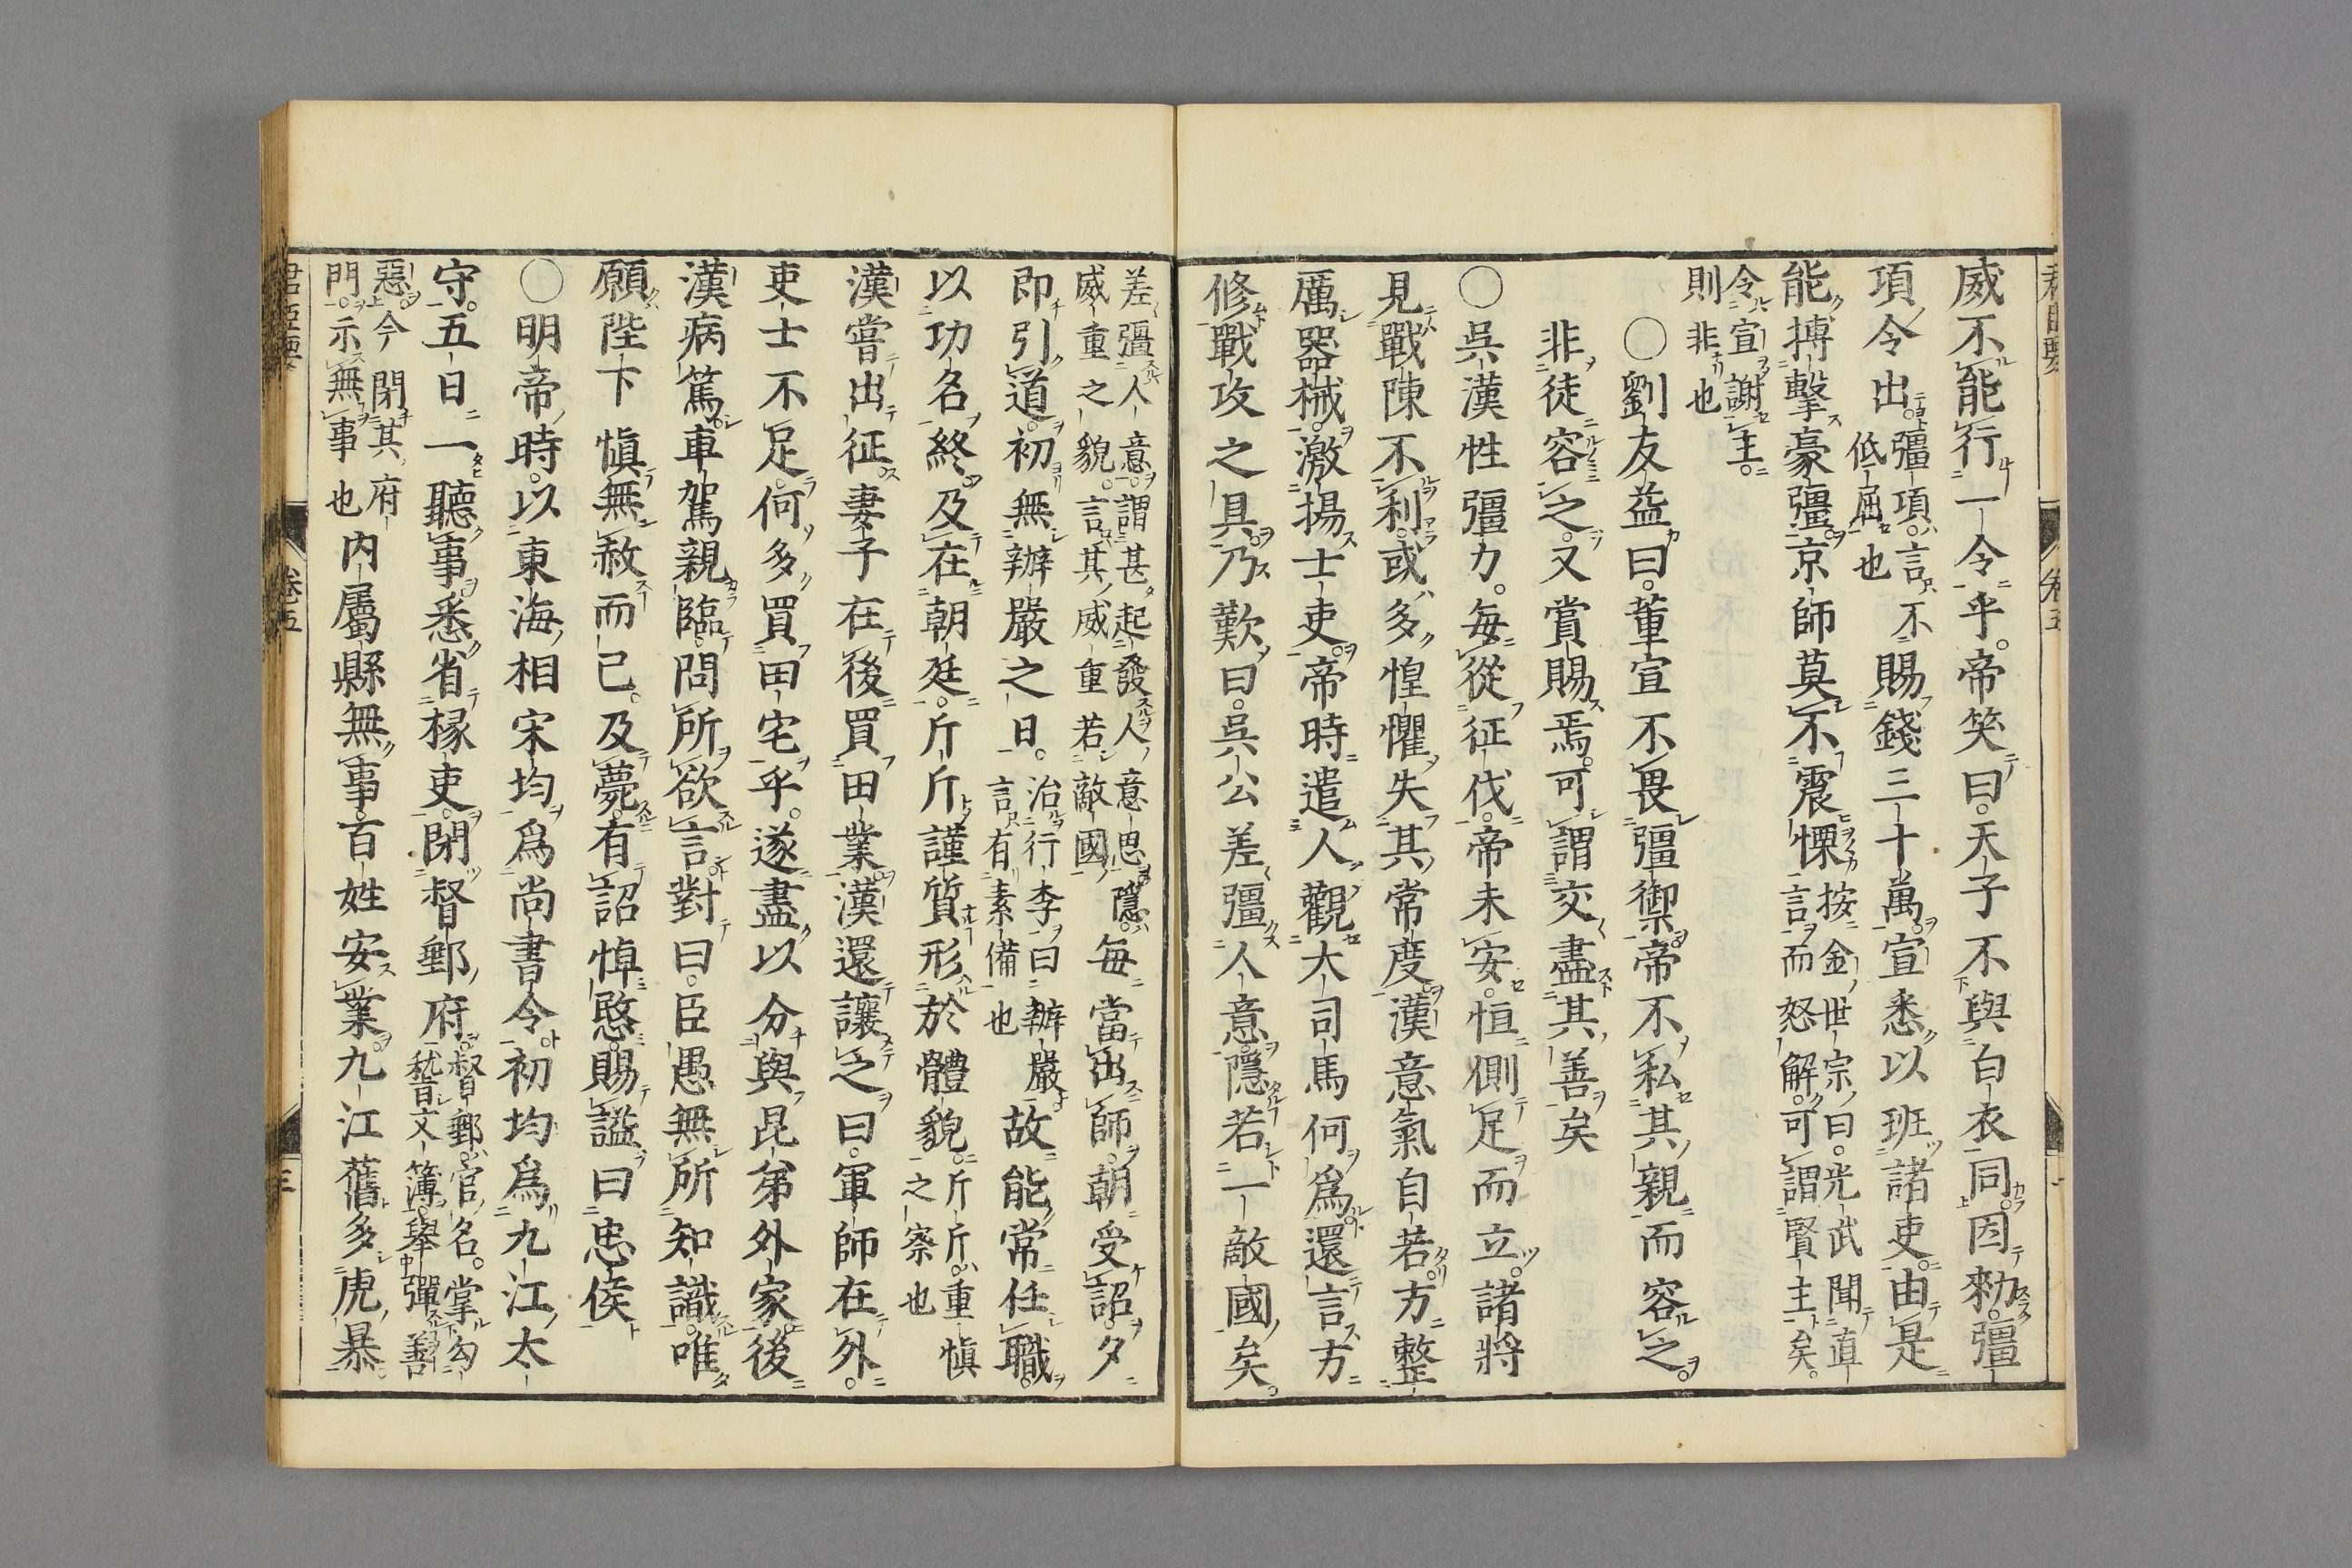 威不能行一令乎。帝笑曰。天子不與白衣同。因勑。彊
項令出。彊項。言不低屈也賜錢三十萬。宣悉以班諸吏。由是
能搏擊豪彊。京師莫不震慄按金世宗曰。光武聞直言而怒解。可謂賢主矣。
令宣謝主。則非也
〇劉友益曰。董宣不畏彊禦。帝不私其親而容之。
非徒容之。又賞賜焉。可謂交盡其善矣
〇吳漢性彊力。毎從征伐。帝未安。恒側足而立。諸將
見戰陳不利。或多惶懼失其常度。漢意氣自若。方整
厲器械。激揚士吏。帝時遣人觀大司馬何爲。還言方
修戰攻之具。乃歎曰。吳公差彊人意。隱若一敵國矣。
差彊人意。謂甚起發人意思。隱。威重之貌。言其威重若敵國毎當出師。朝受詔。夕
即引道。初無辦嚴之日。治行李曰辦嚴。言有素備也故能常任職。
以功名終。及在朝廷。斤斤謹質。形於體貌。斤斤。重愼之察也
漢嘗出征。妻子在後買田業。漢還讓之曰。軍師在外。
吏士不足。何多買田宅乎。遂盡以分與昆弟外家。後
漢病篤。車駕親臨。問所欲言。對曰。臣愚無所知識。唯
願陛下愼無赦而已。及薨。有詔悼愍。賜謚曰忠侯
〇明帝時。以東海相宋均爲尚書令。初均爲九江太
守。五日一聽事。悉省掾吏。閉督郵府。督郵。官名。掌勾稽文簿。舉彈善
惡。今閉其府門。示無事也内屬縣無事。百姓安業。九江舊多虎暴。
卷五
三